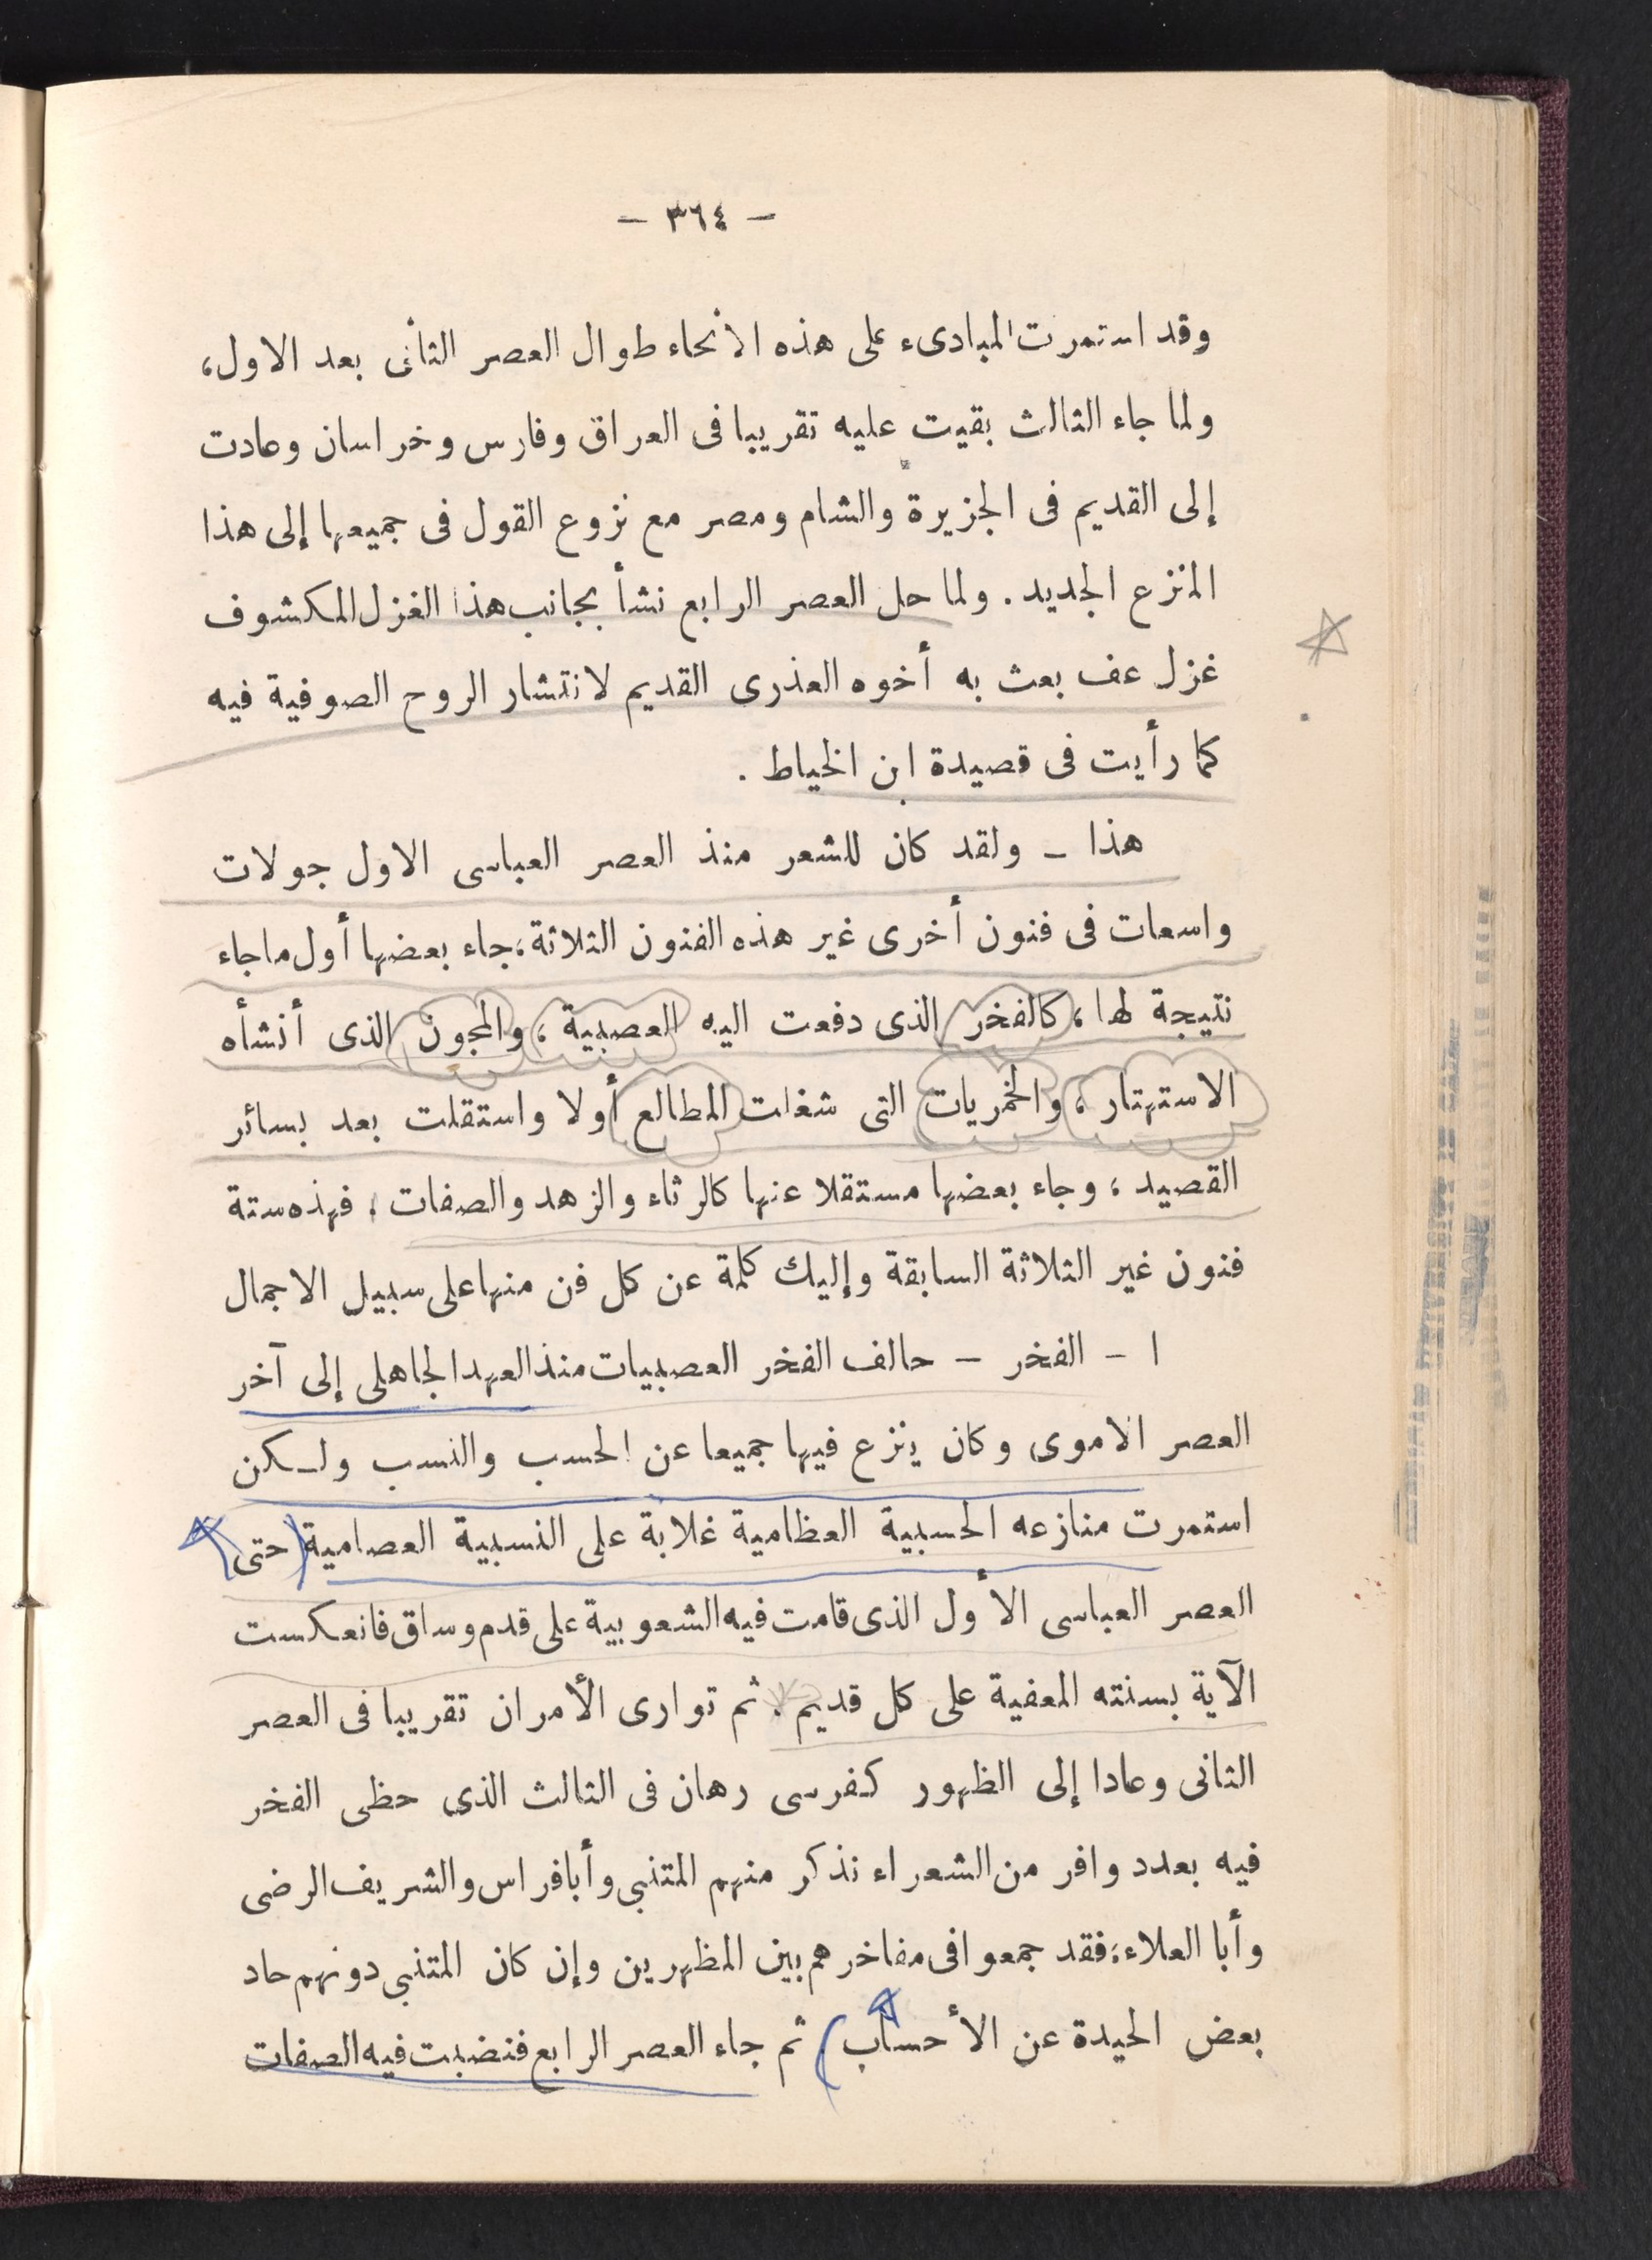 — ٣٦٤ —
وقد استمرت المبادىء على هذه الانحاء طوال العصر الثانى بعد الاول،
ولما جاء الثالث بقيت عليه تقريبا فى العراق وفارس وخراسان وعادت
إلى القديم فى الجزيرة والشام ومصر مع نزوع القول فى جميعها إلى هذا
المنزع الجديد . ولما حل العصر الرابع نشأ بجانب هذا الغزل المكشوف
غزل عف بعث به أخوه العذرى القديم لانتشار الروح الصوفية فيه
كما رأيت فى قصيدة ابن الخياط .
هذا – ولقد كان للشعر منذ العصر العباسى الاول جولات
واسعات فى فنون أخرى غير هذه الفنون الثلاثة، جاء بعضها أول ماجاء
نتيجة لها، كالفخر الذى دفعت اليه العصبية، والمجون الذى أنشأه
الاستهتار، والخمريات التى شغلت المطالع أولا واستقلت بعد بسائر
القصيد، وجاء بعضها مستقلا عنها كالرثاء والزهد والصفات، فهذه ستة
فنون غير الثلاثة السابقة وإليك كلمة عن كل فن منها على سبيل الاجمال
١ – الفخر – حالف الفخر العصبيات منذ العهد الجاهلى إلى آخر
العصر الاموى وكان ينزع فيها جميعا عن الحسب والنسب ولكن
استمرت منازعه الحسبية العظامية غلابة على النسبية العصامية (حتى
العصر العباسى الأول الذى قامت فيه الشعوبية على قدم وساق فانعكست
الآية بسنته المعفية على كل قديم . ثم توارى الأمران تقريبا فى العصر
الثانى وعادا إلى الظهور كفرسى رهان فى الثالث الذى حظى الفخر
فيه بعدد وافر من الشعراء نذكر منهم المتنبى وأبا فراس والشريف الرضى
وأبا العلاء، فقد جمعوا فى مفاخرهم بين المظهرين وإن كان المتنبى دونهم حاد
بعض الحيدة عن الأحساب) ثم جاء العصر الرابع فنضبت فيه الصفات